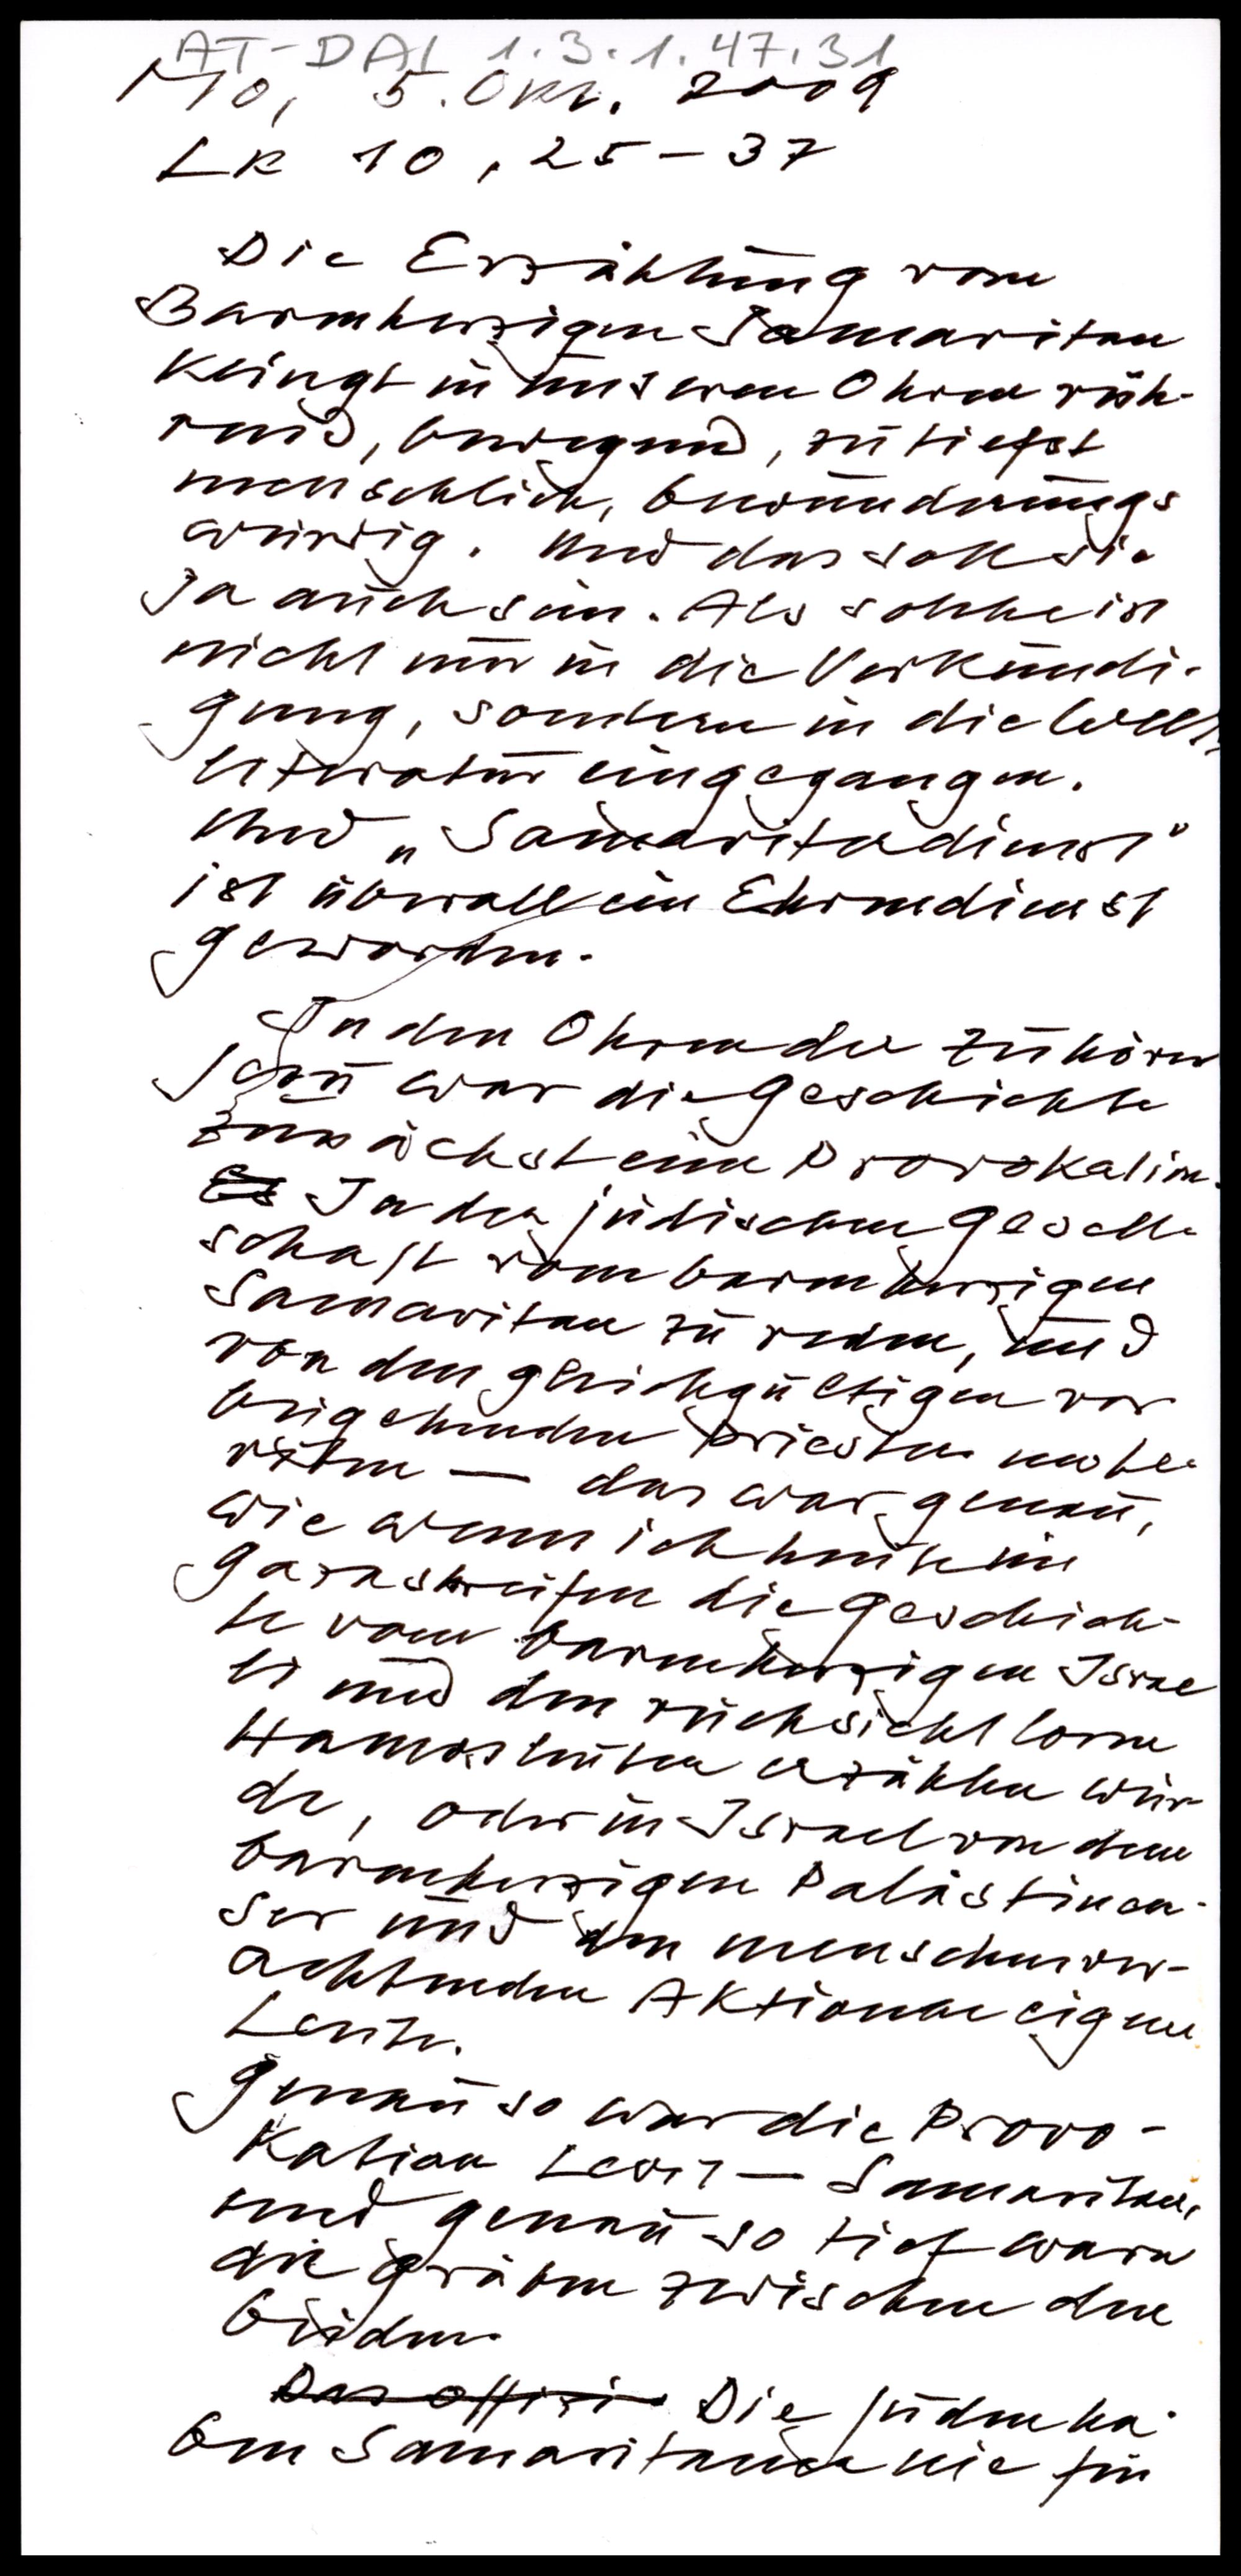 AT-DAI 1.3.1.47.31
Mo, 5. Okt. 2009
Lk 10, 25-37
Die Erzählung vom
Barmherzigen Samaritan
klingt in unseren Ohren rüh-
rend, bewegend, zutiefst
menschlich, bewunderungs
würdig. Und das soll sie
ja auch sein. Als solche ist
nicht nur in die Verkündi-
gung, sondern in die Welt-
literatur eingegangen.
Und „Samariterdienst"
ist überall ein Ehrendienst
geworden.
In den Ohren der Zuhörer
Jesu war die Geschichte
zunächst eine Provokation.
Es In der jüdischen Gesell-
schaft vom barmherzigen
Samaritan zu reden, und
von den gleichgültigen vor
beigehenden Priestern und Le-
viten — das war genau,
wie wenn ich heute im
Gazastreifen die Geschich-
te vom barmherzigen Israe
li und den rücksichtlosen
Hamasleuten erzählen wür-
de, oder in Israel von dem
barmherzigen Palästinen-
ser und den menschenver-
achtenden Aktionen eigener
Leute.
Genau so war die Provo-
kation Levit — Samaritan,
und genau so tief waren
die Gräben zwischen den
beiden.
Das offizi Die Juden ha-
ben Samaritaner nie für